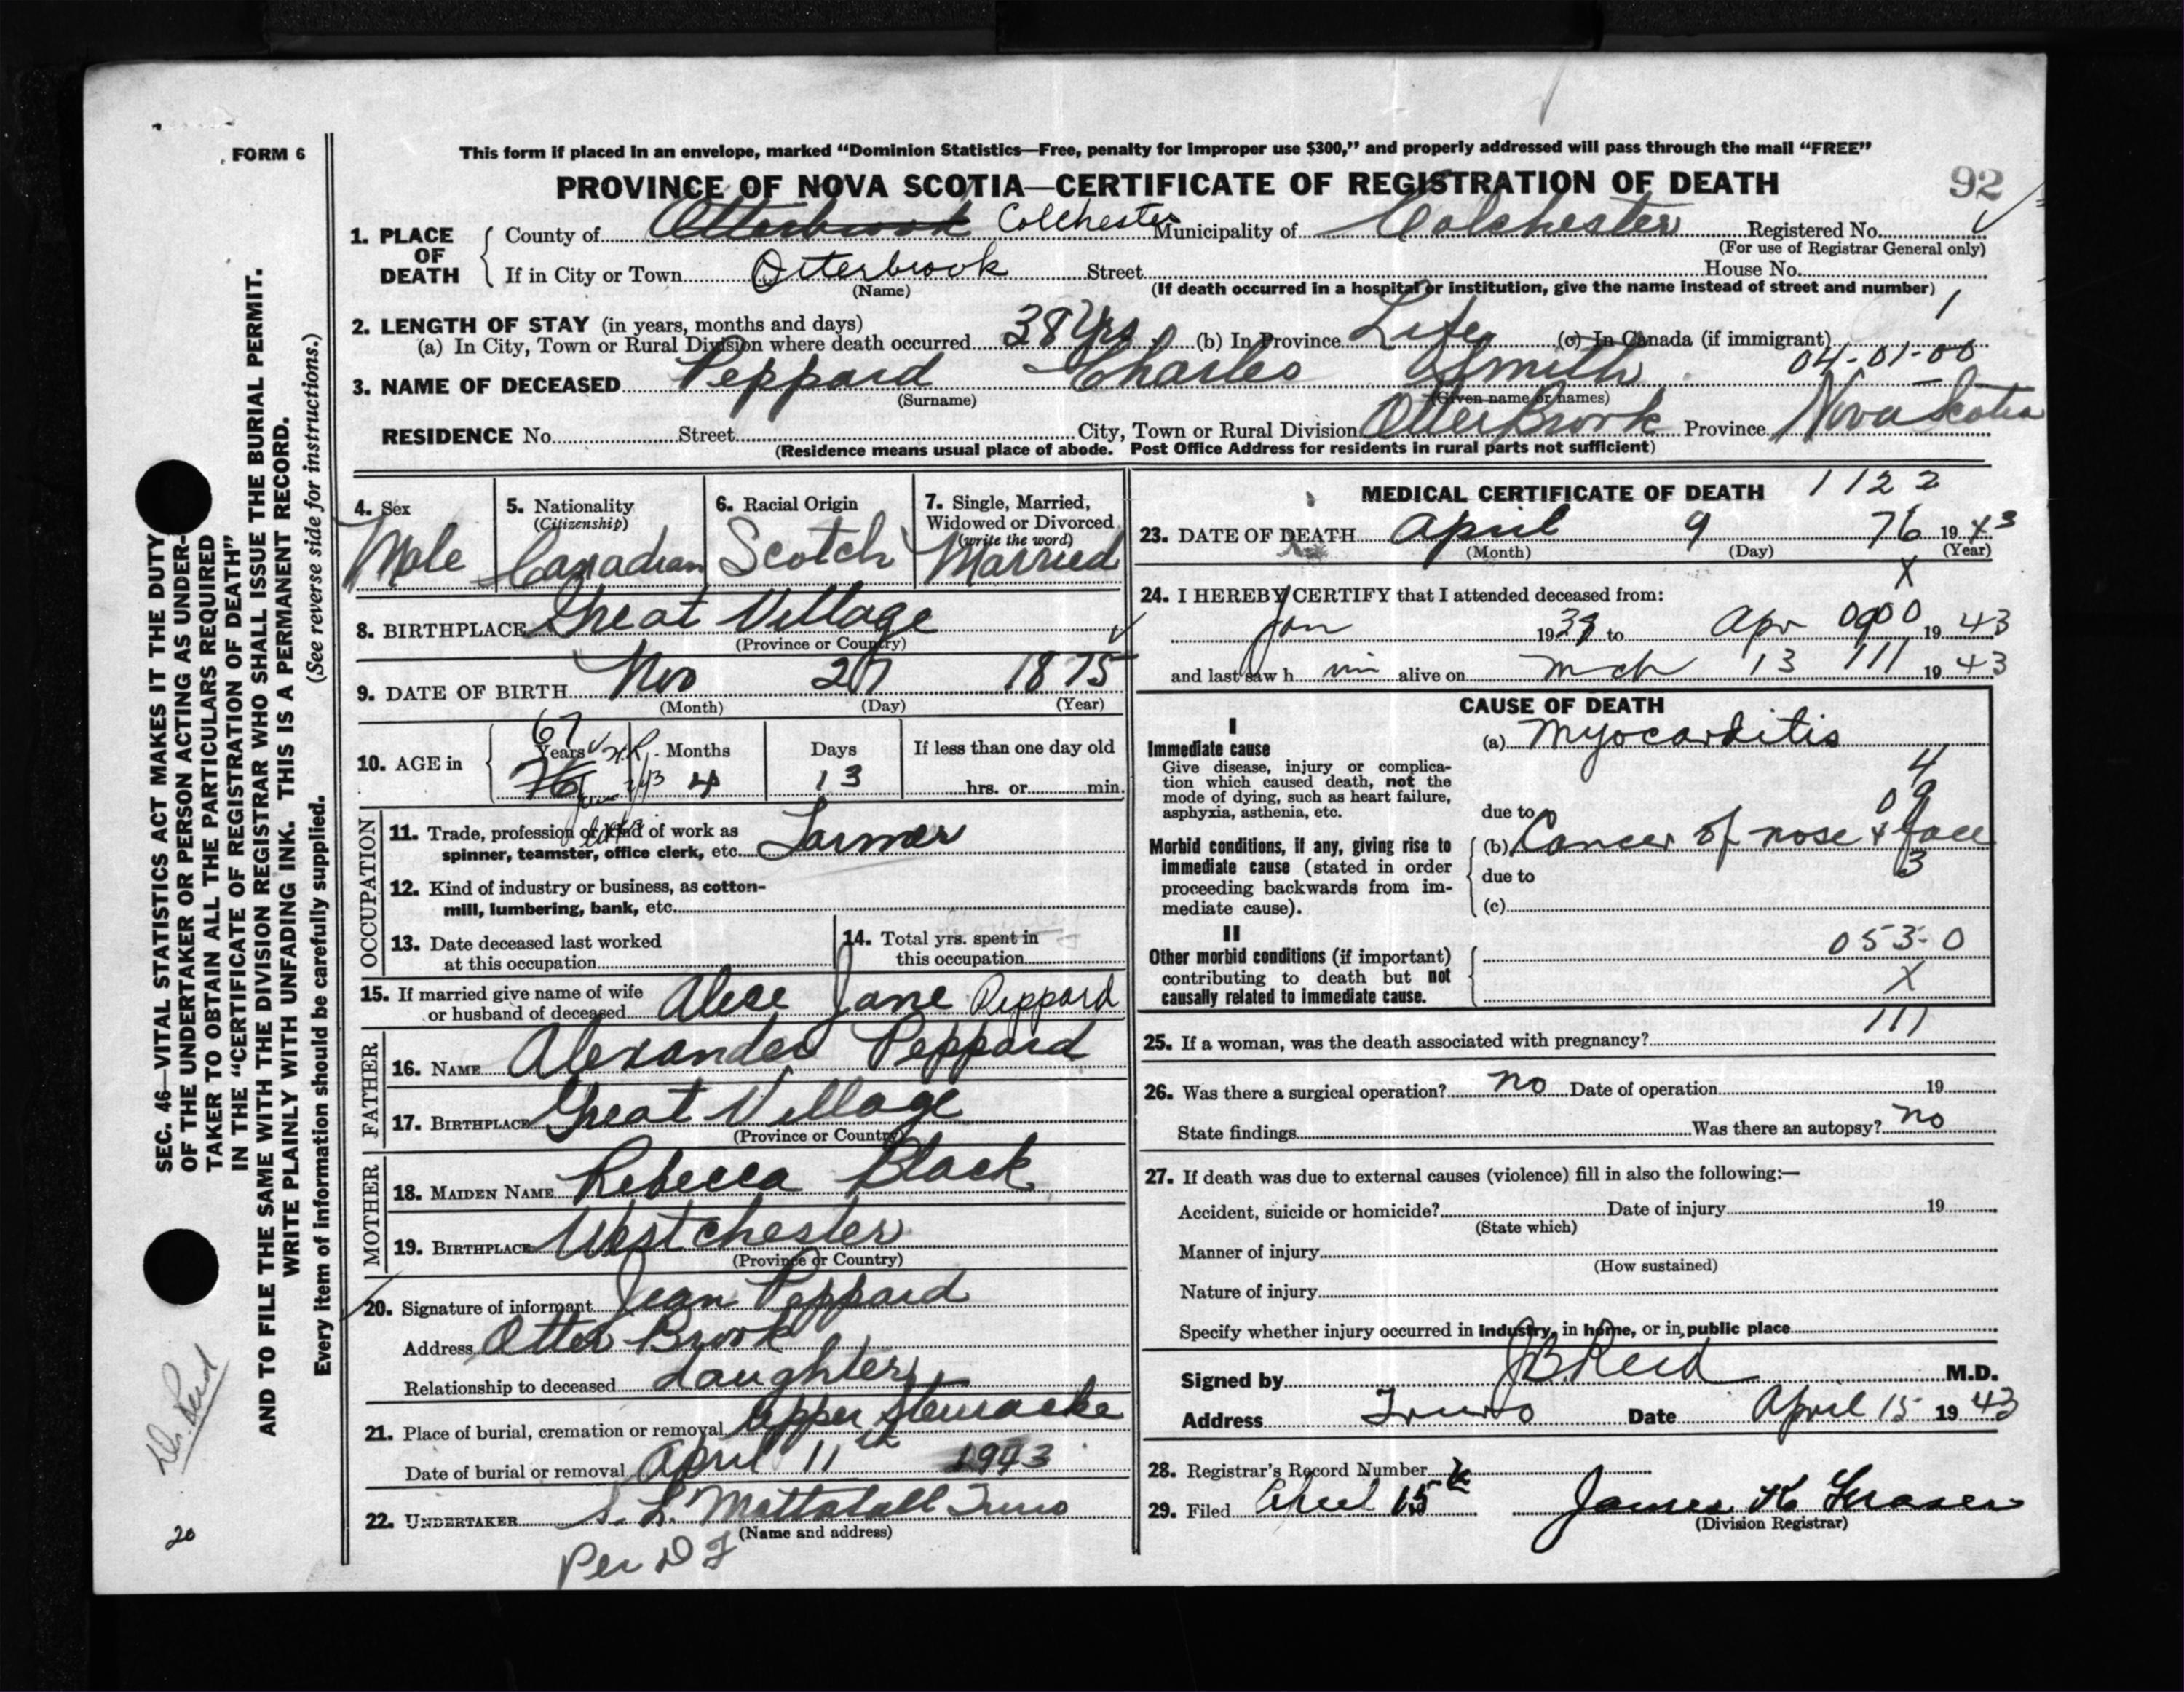 FORM 6
This form if placed in an envelope, marked "Dominion Statistics—Free, penalty for improper use $300," and properly addressed will pass through the mail "FREE"
PROVINCE OF NOVA SCOTIA—CERTIFICATE OF REGISTRATION OF DEATH
92
1. PLACE OF DEATH
County of Otterbrook Colchester Municipality of Colchester Registered No.
(For use of Registrar General only)
If in City or Town Otterbrook Street House No.
(Name)
(If death occurred in a hospital or institution, give the name instead of street and number)
2. LENGTH OF STAY (in years, months and days)
(a) In City, Town or Rural Division where death occurred 38 Yrs. (b) In Province Life (c) In Canada (if immigrant)
04-01-00
3. NAME OF DECEASED Peppard Charles Smith
(Surname) (Given name or names)
RESIDENCE No. Street City, Town or Rural Division Otter Brook Province Nova Scotia
(Residence means usual place of abode. Post Office Address for residents in rural parts not sufficient)
4. Sex
Male
5. Nationality
(Citizenship)
Canadian
6. Racial Origin
Scotch
7. Single, Married,
Widowed or Divorced
(write the word)
Married
8. BIRTHPLACE Great Village
(Province or Country)
9. DATE OF BIRTH Nov 27 1875
(Month) (Day) (Year)
10. AGE in
67
Years Months Days If less than one day old
76 4 13 hrs. or min.
OCCUPATION
11. Trade, profession or kind of work as
spinner, teamster, office clerk, etc. Farmer
12. Kind of industry or business, as cotton-
mill, lumbering, bank, etc.
13. Date deceased last worked
at this occupation
14. Total yrs. spent in
this occupation
15. If married give name of wife
or husband of deceased Alice Jane Peppard
FATHER
16. NAME Alexander Peppard
17. BIRTHPLACE Great Village
(Province or Country)
MOTHER
18. MAIDEN NAME Rebecca Black
19. BIRTHPLACE Westchester
(Province or Country)
20. Signature of informant Jean Peppard
Address Otter Brook
Relationship to deceased daughter
21. Place of burial, cremation or removal Upper Stewiacke
Date of burial or removal April 11th 1943
22. UNDERTAKER S. L. Mattatall Truro
(Name and address)
Per D F
MEDICAL CERTIFICATE OF DEATH 1122
23. DATE OF DEATH April 9 76 1943
(Month) (Day) (Year)
X
24. I HEREBY CERTIFY that I attended deceased from:
Jan 1939 to Apr 0900 1943
and last saw h im alive on Mch 13 111 1943
CAUSE OF DEATH
I
Immediate cause
Give disease, injury or complica-
tion which caused death, not the
mode of dying, such as heart failure,
asphyxia, asthenia, etc.
(a) Myocarditis
due to
Morbid conditions, if any, giving rise to
immediate cause (stated in order
proceeding backwards from im-
mediate cause).
(b) Cancer of nose & face
due to
3
(c)
II
Other morbid conditions (if important)
contributing to death but not
causally related to immediate cause.
053-0
X
111
25. If a woman, was the death associated with pregnancy?
26. Was there a surgical operation? no Date of operation 19
State findings Was there an autopsy? no
27. If death was due to external causes (violence) fill in also the following:—
Accident, suicide or homicide? Date of injury 19
(State which)
Manner of injury
(How sustained)
Nature of injury
Specify whether injury occurred in industry, in home, or in public place
Signed by J B Reid M.D.
Address Truro Date April 15 1943
28. Registrar's Record Number
29. Filed April 15th James K Fraser
(Division Registrar)
SEC. 46—VITAL STATISTICS ACT MAKES IT THE DUTY
OF THE UNDERTAKER OR PERSON ACTING AS UNDER-
TAKER TO OBTAIN ALL THE PARTICULARS REQUIRED
IN THE "CERTIFICATE OF REGISTRATION OF DEATH"
AND TO FILE THE SAME WITH THE DIVISION REGISTRAR WHO SHALL ISSUE THE BURIAL PERMIT.
WRITE PLAINLY WITH UNFADING INK. THIS IS A PERMANENT RECORD.
Every item of information should be carefully supplied. (See reverse side for instructions.)
Dr. Reid
20